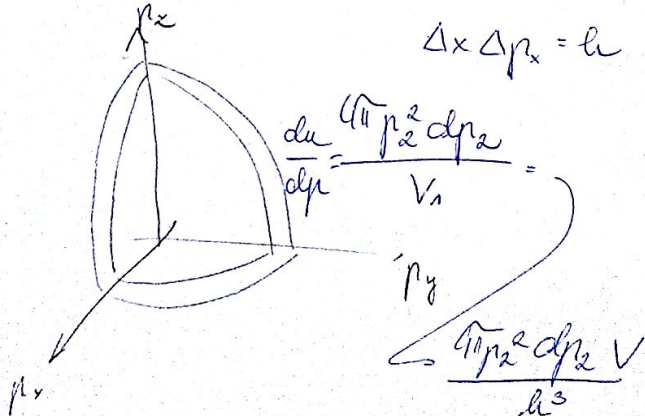 p_z
Δx Δp_x = h
dn/dp = 4π p_2^2 dp_2 / V_1 =
p_y
4π p_2^2 dp_2 V / h^3
p_x